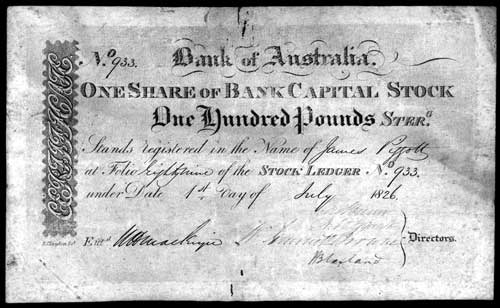 CERTIFICATE
N.º 933.
Bank of Australia.
ONE SHARE OF BANK CAPITAL STOCK
One Hundred Pounds STERg
Stands registered in the Name of James Pigott
at Folio eighty nine of the STOCK LEDGER N.º 933.
under Date 1st Day of July 1826.
Entd
Directors.
Blaxland